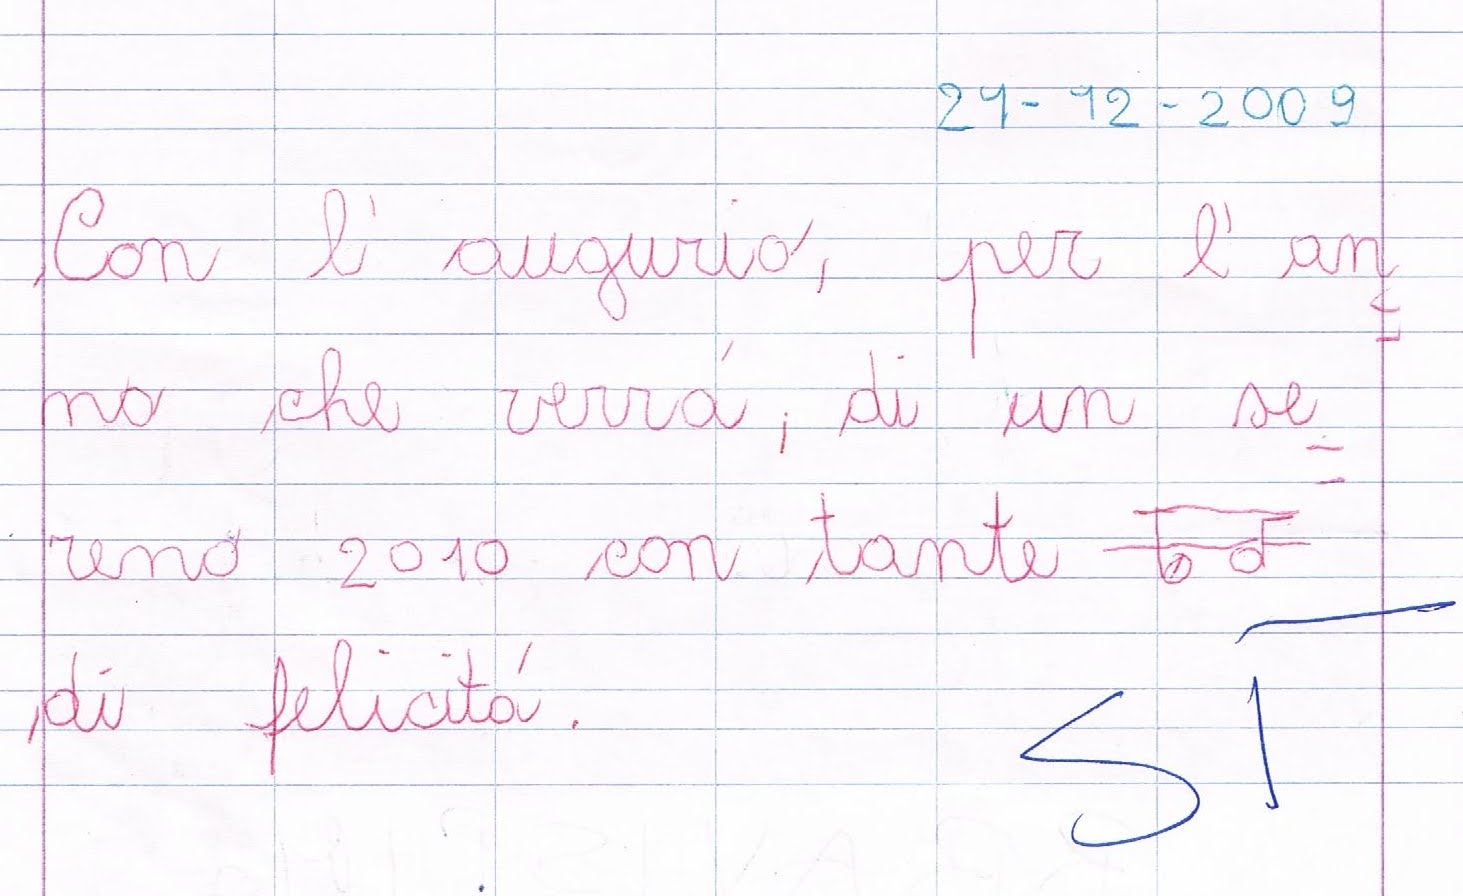 24-12-2009
Con l'augurio, per l'an=
no che verrá, di un se=
reno 2010 con tante
di felicitá.